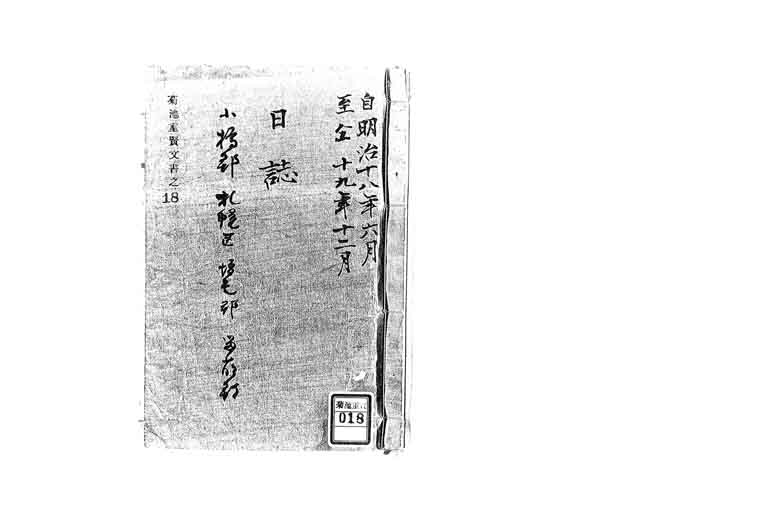 自明治十八年六月
至仝十九年十二月
日誌
小樽郡 札幌区 増毛郡
菊池重賢文書之18
菊池重賢
018